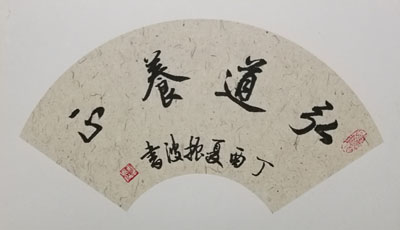 弘道養
丁酉夏振波書